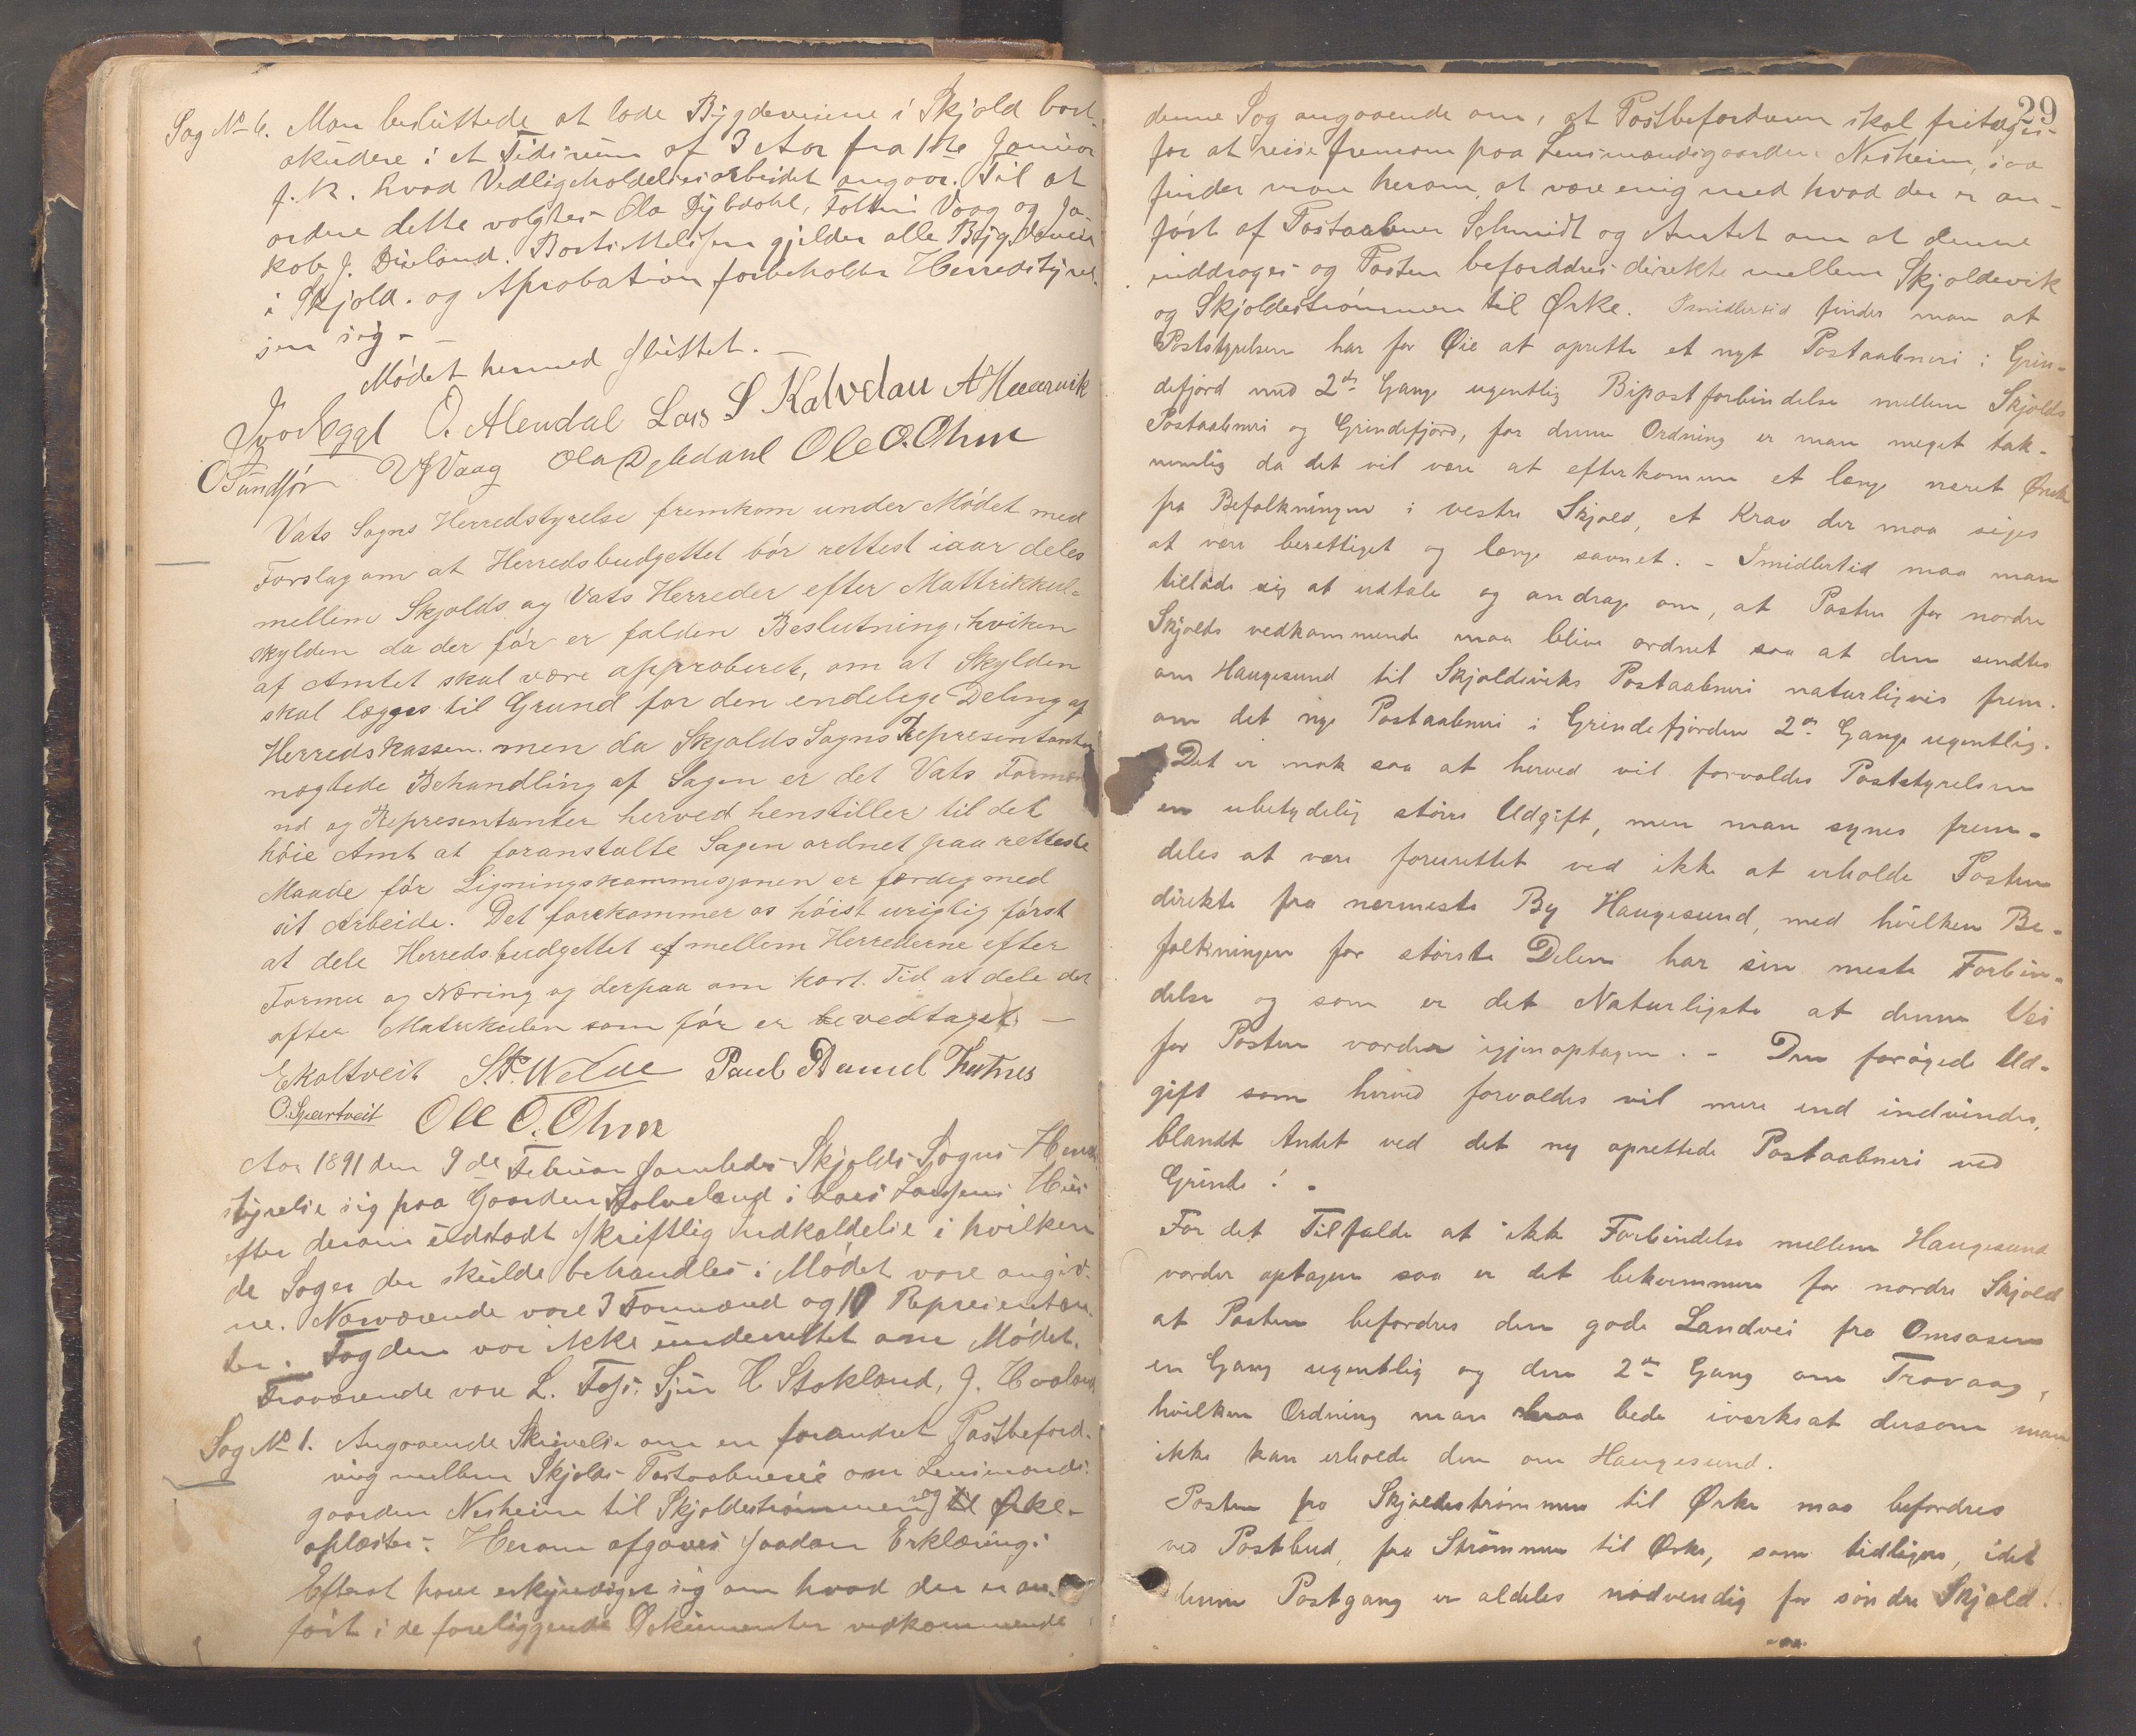 Sag No 6. Man besluttede at lade Bygdeveiene i Skjold bort-
akkudere i et Tidsrum af 3 Aar fra 1ste Januar
f. A. hvad Vedligeholdelsesarbeidet angaar. Til at
ordne dette valgtes Ola Dybdahl, Vaag og Ja-
kob J. Bortsettelsen gjelder alle Bygdeveie
i Skjold. og Aprobation forbeholder Herredstyrel-
sen sig -
Mødet hermed sluttet. -
O. Alendal Lars S Kalvelau
O Sundfør V J Vaag Ola Dybdahl Ole O. Ohm
Vats Sogns Herredstyrelse fremkom under Mødet med
Forslag om at Herredsbudgettet bør rettest iaar deles
mellem Skjolds og Vats Herreder efter Mattrikkul-
skylden da der før er falden Beslutning, hviken
af Amtet skal være approberet, om at Skylden
skal lægges til Grund for den endelege Deling af
Herredskassen. men da Skjolds Sogns Representanter
nægtede Behandling af Sagen er det Vats Formæ
nd og Representanter herved henstiller til det
høie Amt at foranstalte Sagen ordnet paa retteste
Maade før Ligningskommissjonen er færdig med
sit Arbeide. Det forekommer os høist urigtig først
at dele Herredsbudgettet mellem Herrederne efter
Formue og Næring og derpaa om kort Tid at dele det
efter Matrikulen som før er vedtaget. -
E Koltveit Paul
Ole O. Ohm
Aar 1891 den 9de Februar samledes Skjolds Sogns Herreds
styrelse sig paa Gaarden Kalveland i Lars Larsens Hus
efter derom udstædt skriftlig Indkaldelse i hvilken
de Sager der skulde behandles i Mødet vare angiv-
ne. Nærværende vare 3 Formænd og 10 Represientan-
ter. Fogden var ikke underrettet om Mødet.
Fraværende vare L. Foss. Sjur H Stokland, J.
Sag No 1. Angaaende Skrivelse om en forandret Postbeford-
ring mellem Skjolds Postaabneri om Lensmands-
gaarden Nesheim til Skjoldestrømmen og til Ørke-
oplæstes. Herom afgaves saadan Erklæring:
Efterat have erkyndiget sig om hvad der er an-
ført i de foreliggende Dokumenter vedkommende
29
denne Sag angaaende om, at Postbefordreren skal fritages
for at reise fremom paa Lensmandsgaarden Nesheim, saa
finder man herom at være enig med hvad der er an-
ført af Postaabner Schmidt og Amtet om at denne
inddrages og Posten beforddres direkte mellem Skjoldevik
og Skjoldestrømmen til Ørke. Imidlertid finder man at
Poststyrelsen har for Øie at oprette et nyt Postaabneri i Grin-
defjord med 2de Gange ugentlig Bipostforbindelse mellem Skjolds
Postaabneri og Grindefjord, for denne Ordning er man meget tak-
nemlig da det vil være at efterkomme et længe næret Ønske
fra Befolkningen i vestre Skjold, et Krav der maa siges
at være berettiget og længe savnet. - Imidlertid maa man
tillade sig at udtale og andrage om, at Posten for nordre
Skjolds vedkommende maa blive ordnet saa at den sendtes
om Haugesund til Skjoldeviks Postaabneri naturligvis frem-
om det nye Postaabneri i Grindefjorden 2de Gange ugentlig.
Det er nok saa at herved vil forvoldes Poststyrelsen
en ubetydelig større Udgift, men man synes frem-
deles at være forurettet ved ikke at erholde Posten
direkte fra nærmeste By Haugesund, med hvilken Be-
folkningen for største Delen har sin meste Forbin-
delse og som er det Naturligste at denne Vei
for Posten vorder igjenoptagen. - Den forøgede Ud-
gift som herved forvoldes vil mere end indvindes,
blandt Andet ved det ny oprettede Postaabneri ved
Grinde! -
For det Tilfælde at ikke Forbindelse mellem Haugesund
vorder optagen saa er det bekvemmere for nordre Skjold
at Posten befordres den gode Landvei fra Omsosen
en Gang ugentlig og den 2den Gang om Trovaag,
hvilken Ordning man maa bede iverksat dersom man
ikke kan erholde den om Haugesund.
Posten fra Skjoldestrømmen til Ørke maa befordres
ved Postbud, fra Strømmen til Ørke, som tidligere, idet
denne Postgang er aldeles nødvendig for søndre Skjold.